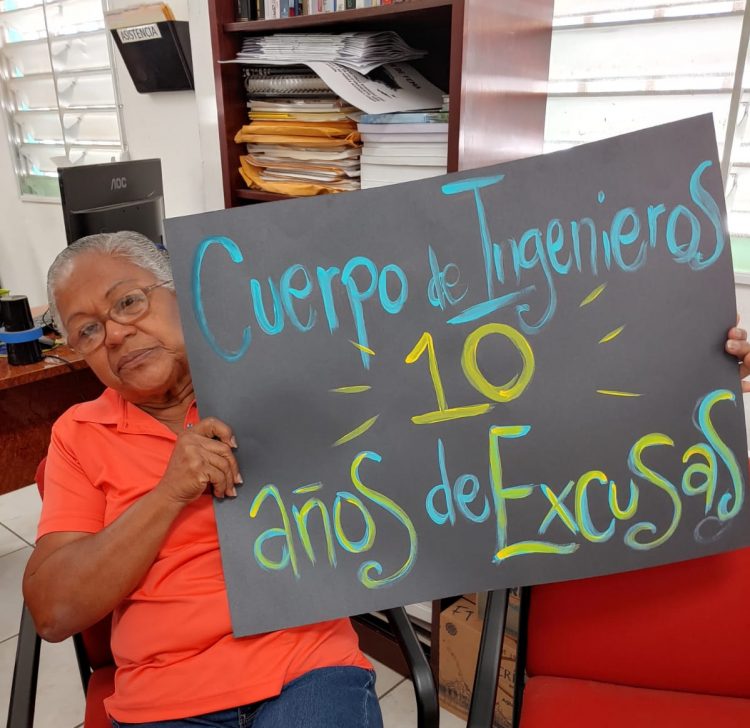 ASISTENCIA
AOC
Cuerpo de Ingenieros
10
años de Excusas